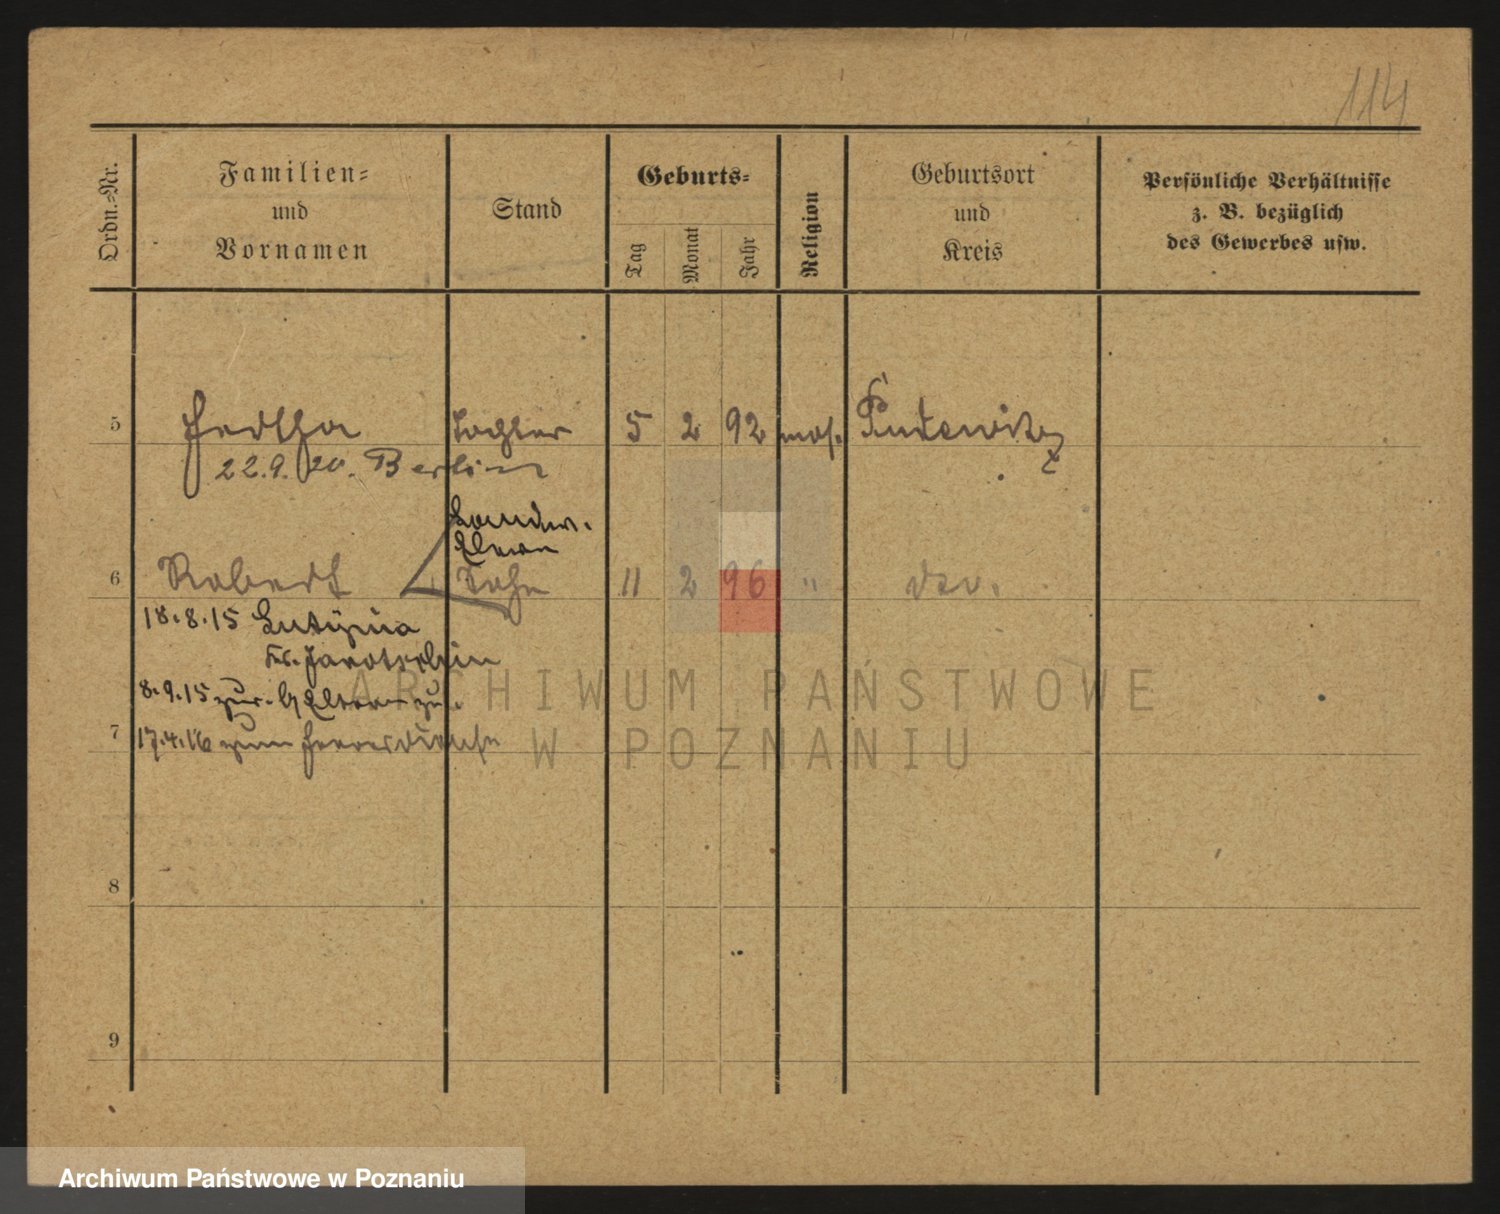 114
Ordn.-Nr.
Familien-
und
Vornamen
Stand
Geburts-
Tag
Monat
Jahr
Religion
Geburtsort
und
Kreis
Persönliche Verhältnisse
z. B. bezüglich
des Gewerbes usw.
5 Hertha Tochter 5 2 92 mos. Pudewitz
22.9.20. Berlin
Landw.
Eleve
6 Robert Sohn 11 2 96 " dto.
18.8.15
Kr. Jarotschin
8.9.15 zur. b/ Eltern zu.
7 17.4.16 zum Heeresdienste
8
9
ARCHIWUM PAŃSTWOWE
W POZNANIU
Archiwum Państwowe w Poznaniu